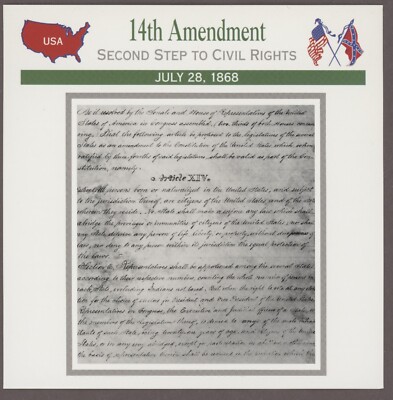 USA
14th Amendment
SECOND STEP TO CIVIL RIGHTS
JULY 28, 1868
Be it resolved by the Senate and House of Representatives of the United
States of America in Congress assembled, two thirds of both Houses concur-
ring, That the following article be proposed to the legislatures of the several
States as an amendment to the Constitution of the United States which when
ratified by three fourths of said legislatures, shall be valid as part of the Con-
stitution, namely:
Article XIV.
All persons born or naturalized in the United States, and subject
to the jurisdiction thereof, are citizens of the United States and of the State
wherein they reside. No State shall make or enforce any law which shall
abridge the privileges or immunities of citizens of the United States; nor shall
any State deprive any person of life, liberty, or property, without due process of
law, nor deny to any person within its jurisdiction the equal protection of
the laws.
Section 2. Representatives shall be apportioned among the several States
according to their respective numbers, counting the whole number of persons in
each State, excluding Indians not taxed. But when the right to vote at any elec-
tion for the choice of electors for President and Vice President of the United States
Representatives in Congress, the Executive and Judicial officers of a State, or
the members of the Legislature thereof, is denied to any of the male inhabi-
tants of such State, being twenty one years of age, and citizens of the United
States, or in any way abridged, except for participation in
the basis of representation therein shall be reduced in the proportion which the